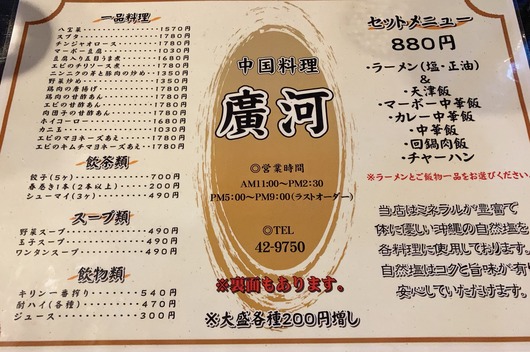 一品料理
八宝菜・・・・・・・・・・・・1570円
スブタ・・・・・・・・・・・・1780円
チンジャオロース・・・・・・・1780円
マーボー豆腐・・・・・・・・・1030円
豆腐入り五目うま煮・・・・・・1680円
エビのチリソース煮・・・・・・1780円
ニンニクの芽と豚肉の炒め・・・1350円
野菜炒め・・・・・・・・・・・1350円
鶏肉の唐揚げ・・・・・・・・・1780円
鶏肉の甘酢あん・・・・・・・・1780円
エビの甘酢あん・・・・・・・・1780円
肉団子の甘酢あん・・・・・・・1780円
ホイコーロー・・・・・・・・・1680円
カニ玉・・・・・・・・・・・・1030円
エビのマヨネーズあえ・・・・・1780円
エビのキムチマヨネーズあえ・・1780円
飲茶類
餃子(5ヶ)・・・・・・・・・700円
春巻き1本(2本以上)・・・・200円
シューマイ(3ヶ)・・・・・・490円
スープ類
野菜スープ・・・・・・・・・・490円
玉子スープ・・・・・・・・・・490円
ワンタンスープ・・・・・・・・490円
飲物類
キリン一番搾り・・・・・・・540円
酎ハイ(各種)・・・・・・・470円
ジュース・・・・・・・・・・300円
中国料理
廣河
◎営業時間
AM11:00〜PM2:30
PM5:00〜PM9:00(ラストオーダー)
◎TEL
42-9750
※裏面もあります。
※大盛各種200円増し
セットメニュー
880円
・ラーメン(塩・正油)
&
・天津飯
・マーボー中華飯
・カレー中華飯
・中華飯
・回鍋肉飯
・チャーハン
※ラーメンとご飯物一品をお選びください。
当店はミネラルが豊富で
体に優しい沖縄の自然塩を
各料理に使用しております。
自然塩はコクと旨味が有り
安心していただけます。